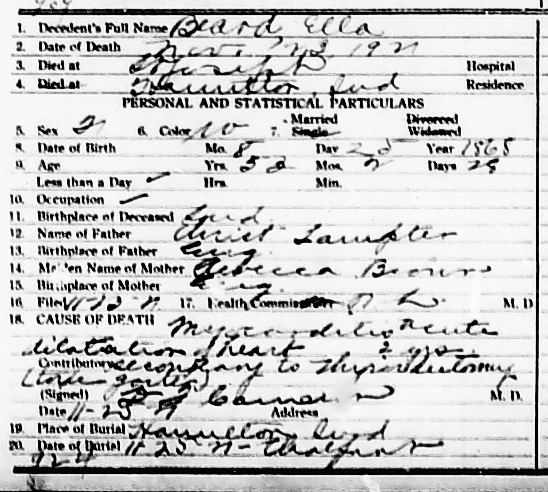 1. Decedent's Full Name Beard Ella
2. Date of Death Nov 23 192
3. Died at St Joseph Hospital
4. Died at Hamilton Ind Residence
PERSONAL AND STATISTICAL PARTICULARS
5. Sex 6. Color W 7. Married Single Divorced Widowed
8. Date of Birth Mo. 8 Day 25 Year 1868
9. Age Yrs. 5 Mos. 2 Days 29
Less than a Day ✓ Hrs. Min.
10. Occupation ✓
11. Birthplace of Deceased Ind
12. Name of Father Christ
13. Birthplace of Father Eng
14. Maiden Name of Mother Rebecca Brown
15. Birthplace of Mother Eng
16. Filed 17. Health Commissioner M. D.
18. CAUSE OF DEATH Myocarditis acute
dilatation of heart 2 yrs
Contributory secondary to thyroidectomy
(toxic goiter)
(Signed) M. D.
Date 11-23 Address
19. Place of Burial Hamilton Ind
20. Date of Burial 11-25